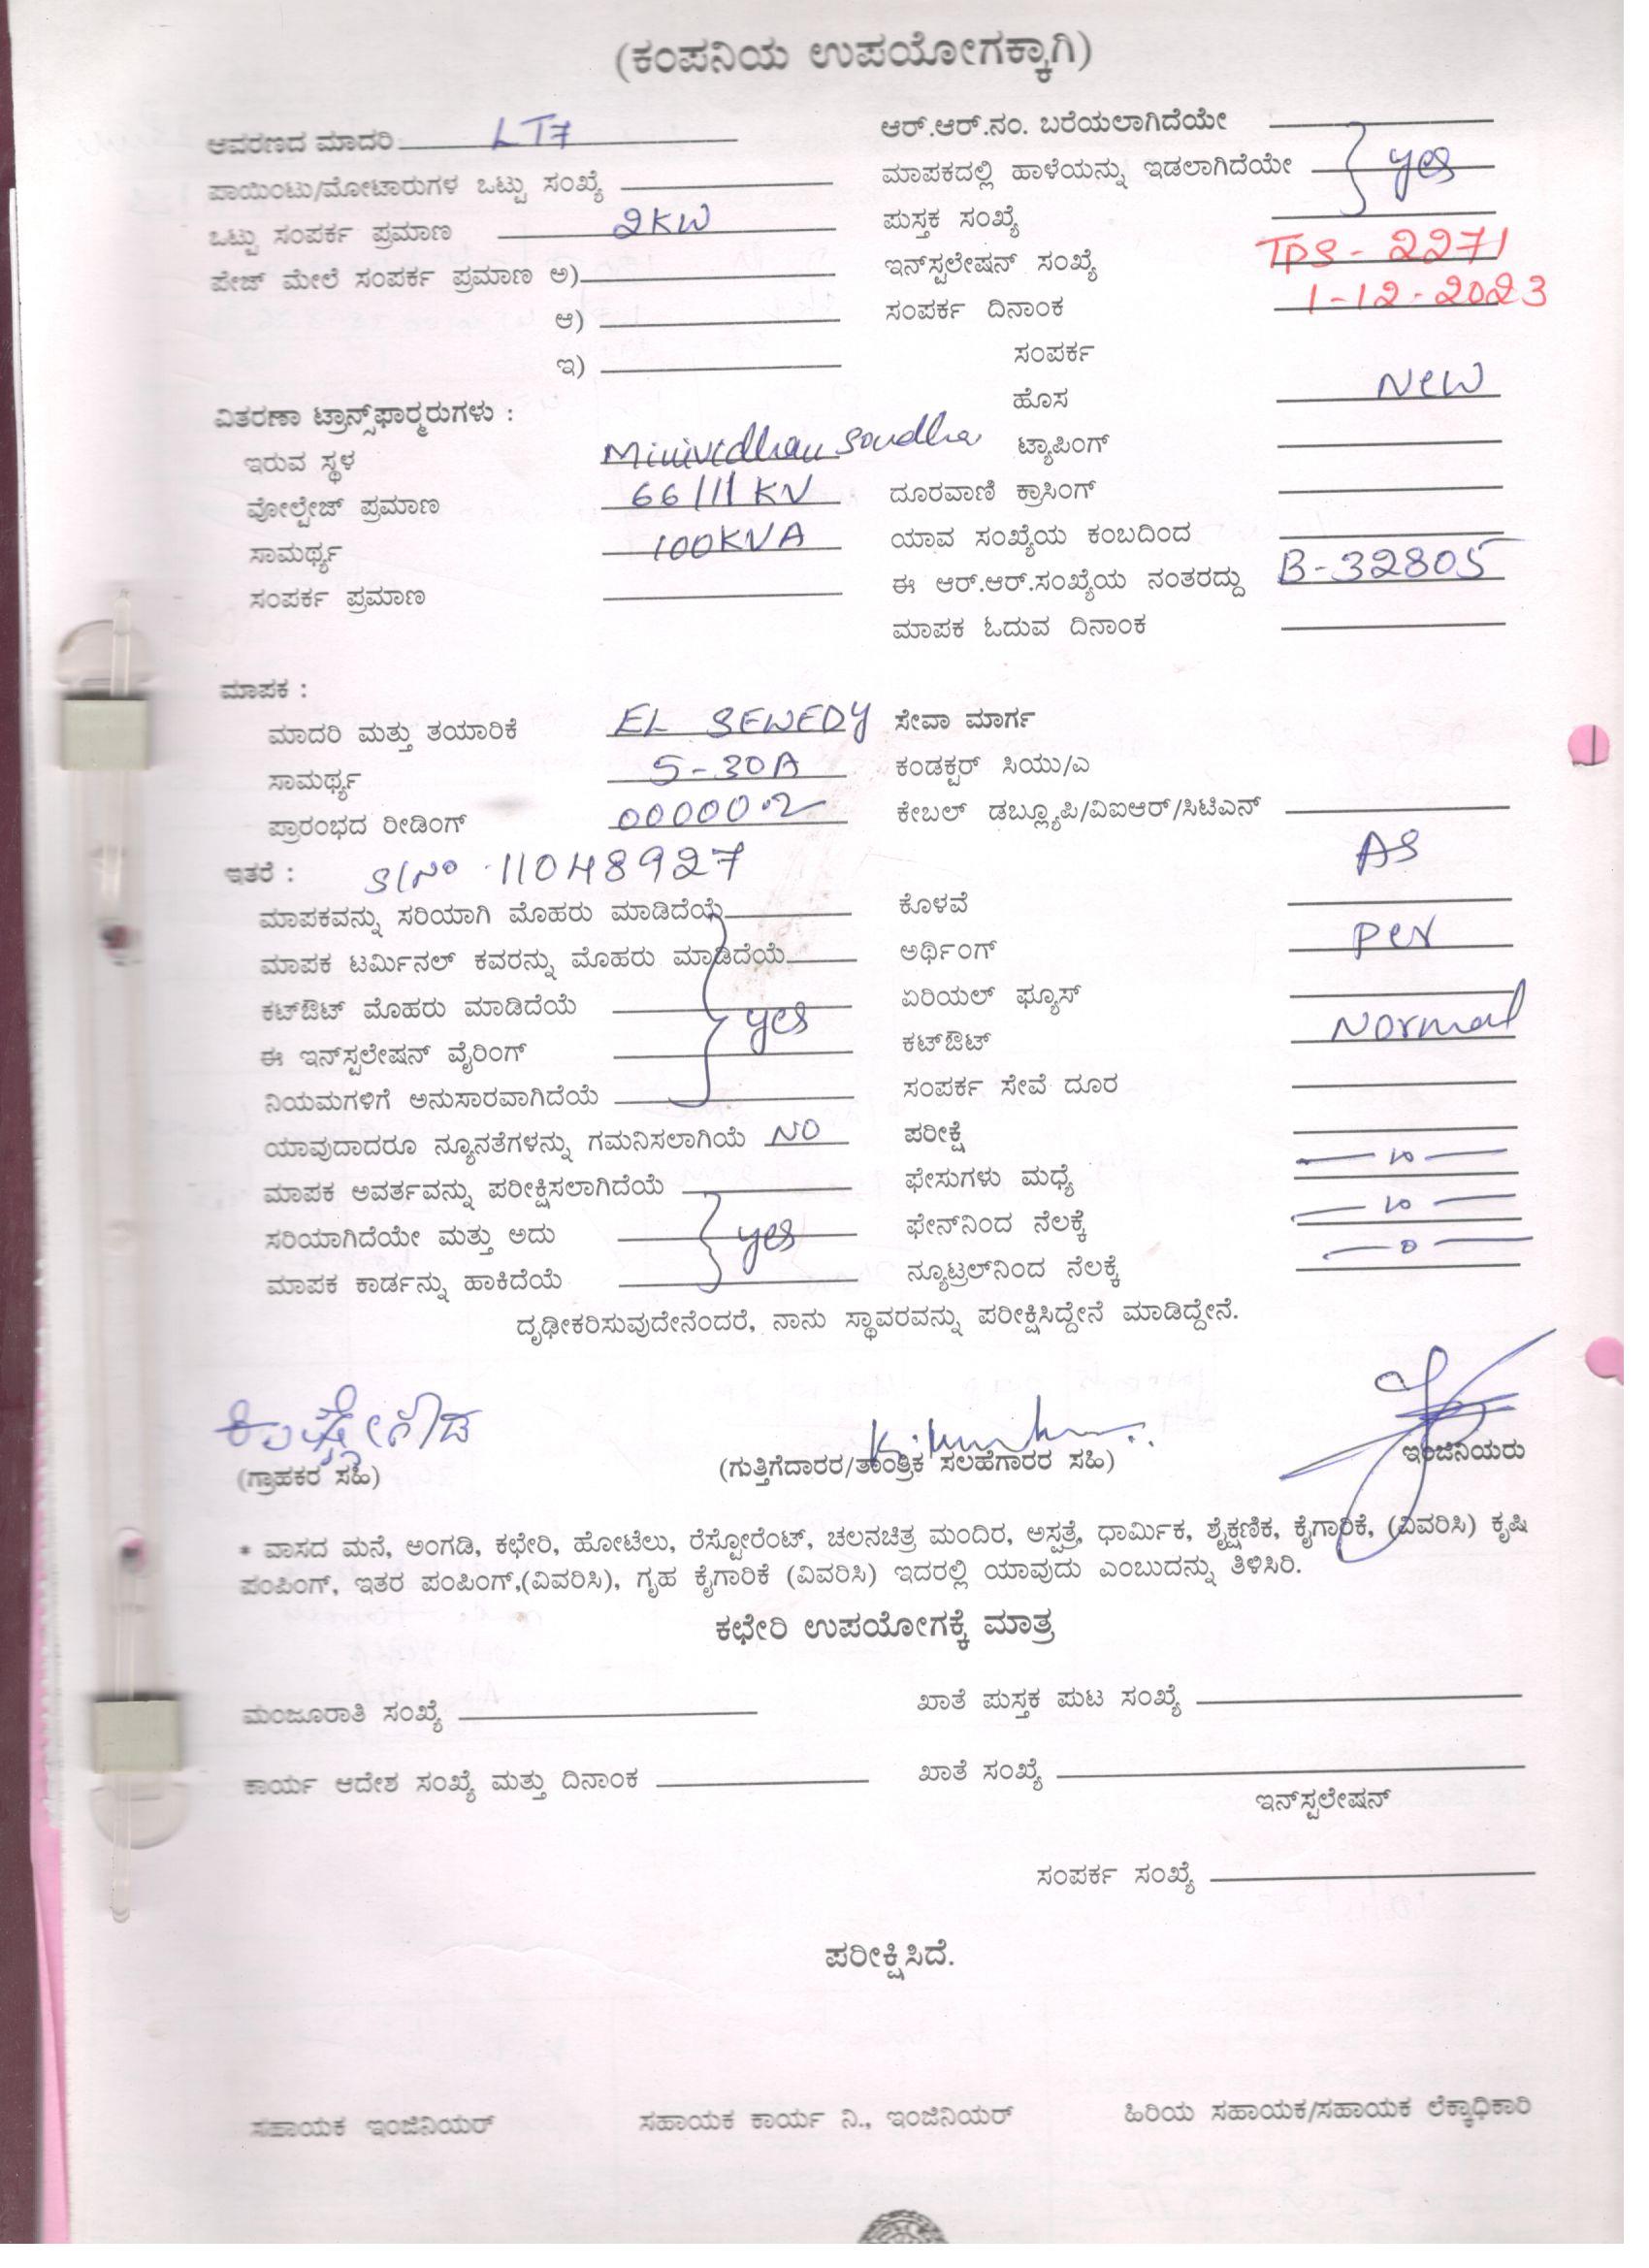 (ಕಂಪನಿಯ ಉಪಯೋಗಕ್ಕಾಗಿ)
ಆವರಣದ ಮಾದರಿ LT7
ಪಾಯಿಂಟು/ಮೋಟಾರುಗಳ ಒಟ್ಟು ಸಂಖ್ಯೆ
ಒಟ್ಟು ಸಂಪರ್ಕ ಪ್ರಮಾಣ 2KW
ಪೇಜ್ ಮೇಲೆ ಸಂಪರ್ಕ ಪ್ರಮಾಣ ಅ)
ಆ)
ಇ)
ವಿತರಣಾ ಟ್ರಾನ್ಸ್‌ಫಾರ್ಮರುಗಳು :
ಇರುವ ಸ್ಥಳ Minividhan Soudha
ವೋಲ್ಟೇಜ್ ಪ್ರಮಾಣ 66/11 KV
ಸಾಮರ್ಥ್ಯ 100KVA
ಸಂಪರ್ಕ ಪ್ರಮಾಣ
ಆರ್.ಆರ್.ನಂ. ಬರೆಯಲಾಗಿದೆಯೇ
ಮಾಪಕದಲ್ಲಿ ಹಾಳೆಯನ್ನು ಇಡಲಾಗಿದೆಯೇ yes
ಪುಸ್ತಕ ಸಂಖ್ಯೆ
ಇನ್‌ಸ್ಟಲೇಷನ್ ಸಂಖ್ಯೆ TPS - 2271
ಸಂಪರ್ಕ ದಿನಾಂಕ 1-12-2023
ಸಂಪರ್ಕ
ಹೊಸ New
ಟ್ಯಾಪಿಂಗ್
ದೂರವಾಣಿ ಕ್ರಾಸಿಂಗ್
ಯಾವ ಸಂಖ್ಯೆಯ ಕಂಬದಿಂದ
ಈ ಆರ್.ಆರ್.ಸಂಖ್ಯೆಯ ನಂತರದ್ದು B-32805
ಮಾಪಕ ಓದುವ ದಿನಾಂಕ
ಮಾಪಕ :
ಮಾದರಿ ಮತ್ತು ತಯಾರಿಕೆ EL SEWEDY
ಸಾಮರ್ಥ್ಯ 5-30A
ಪ್ರಾರಂಭದ ರೀಡಿಂಗ್ 00000.2
ಇತರೆ : Sl No 11048927
ಮಾಪಕವನ್ನು ಸರಿಯಾಗಿ ಮೊಹರು ಮಾಡಿದೆಯೆ
ಮಾಪಕ ಟರ್ಮಿನಲ್ ಕವರನ್ನು ಮೊಹರು ಮಾಡಿದೆಯೆ
ಕಟ್‌ಔಟ್ ಮೊಹರು ಮಾಡಿದೆಯೆ yes
ಈ ಇನ್‌ಸ್ಟಲೇಷನ್ ವೈರಿಂಗ್
ನಿಯಮಗಳಿಗೆ ಅನುಸಾರವಾಗಿದೆಯೆ
ಯಾವುದಾದರೂ ನ್ಯೂನತೆಗಳನ್ನು ಗಮನಿಸಲಾಗಿಯೆ NO
ಮಾಪಕ ಅವರ್ತವನ್ನು ಪರೀಕ್ಷಿಸಲಾಗಿದೆಯೆ
ಸರಿಯಾಗಿದೆಯೇ ಮತ್ತು ಅದು yes
ಮಾಪಕ ಕಾರ್ಡನ್ನು ಹಾಕಿದೆಯೆ
ಸೇವಾ ಮಾರ್ಗ
ಕಂಡಕ್ಟರ್ ಸಿಯು/ಎ
ಕೇಬಲ್ ಡಬ್ಲ್ಯೂಪಿ/ವಿಐಆರ್/ಸಿಟಿಎನ್
AS
ಕೊಳವೆ
ಅರ್ಥಿಂಗ್ Per
ಏರಿಯಲ್ ಫ್ಯೂಸ್
ಕಟ್‌ಔಟ್ Normal
ಸಂಪರ್ಕ ಸೇವೆ ದೂರ
ಪರೀಕ್ಷೆ
ಫೇಸುಗಳು ಮಧ್ಯೆ
ಫೇನ್‌ನಿಂದ ನೆಲಕ್ಕೆ
ನ್ಯೂಟ್ರಲ್‌ನಿಂದ ನೆಲಕ್ಕೆ
ದೃಢೀಕರಿಸುವುದೇನೆಂದರೆ, ನಾನು ಸ್ಥಾವರವನ್ನು ಪರೀಕ್ಷಿಸಿದ್ದೇನೆ ಮಾಡಿದ್ದೇನೆ.
(ಗ್ರಾಹಕರ ಸಹಿ) (ಗುತ್ತಿಗೆದಾರರ/ತಾಂತ್ರಿಕ ಸಲಹೆಗಾರರ ಸಹಿ) ಇಂಜಿನಿಯರು
* ವಾಸದ ಮನೆ, ಅಂಗಡಿ, ಕಛೇರಿ, ಹೋಟೆಲು, ರೆಸ್ಟೋರೆಂಟ್, ಚಲನಚಿತ್ರ ಮಂದಿರ, ಅಸ್ಪತ್ರೆ, ಧಾರ್ಮಿಕ, ಶೈಕ್ಷಣಿಕ, ಕೈಗಾರಿಕೆ, (ವಿವರಿಸಿ) ಕೃಷಿ
ಪಂಪಿಂಗ್, ಇತರ ಪಂಪಿಂಗ್,(ವಿವರಿಸಿ), ಗೃಹ ಕೈಗಾರಿಕೆ (ವಿವರಿಸಿ) ಇದರಲ್ಲಿ ಯಾವುದು ಎಂಬುದನ್ನು ತಿಳಿಸಿರಿ.
ಕಛೇರಿ ಉಪಯೋಗಕ್ಕೆ ಮಾತ್ರ
ಮಂಜೂರಾತಿ ಸಂಖ್ಯೆ ಖಾತೆ ಪುಸ್ತಕ ಪುಟ ಸಂಖ್ಯೆ
ಕಾರ್ಯ ಆದೇಶ ಸಂಖ್ಯೆ ಮತ್ತು ದಿನಾಂಕ ಖಾತೆ ಸಂಖ್ಯೆ
ಇನ್‌ಸ್ಟಲೇಷನ್
ಸಂಪರ್ಕ ಸಂಖ್ಯೆ
ಪರೀಕ್ಷಿಸಿದೆ.
ಸಹಾಯಕ ಇಂಜಿನಿಯರ್ ಸಹಾಯಕ ಕಾರ್ಯ ನಿ., ಇಂಜಿನಿಯರ್ ಹಿರಿಯ ಸಹಾಯಕ/ಸಹಾಯಕ ಲೆಕ್ಕಾಧಿಕಾರಿ